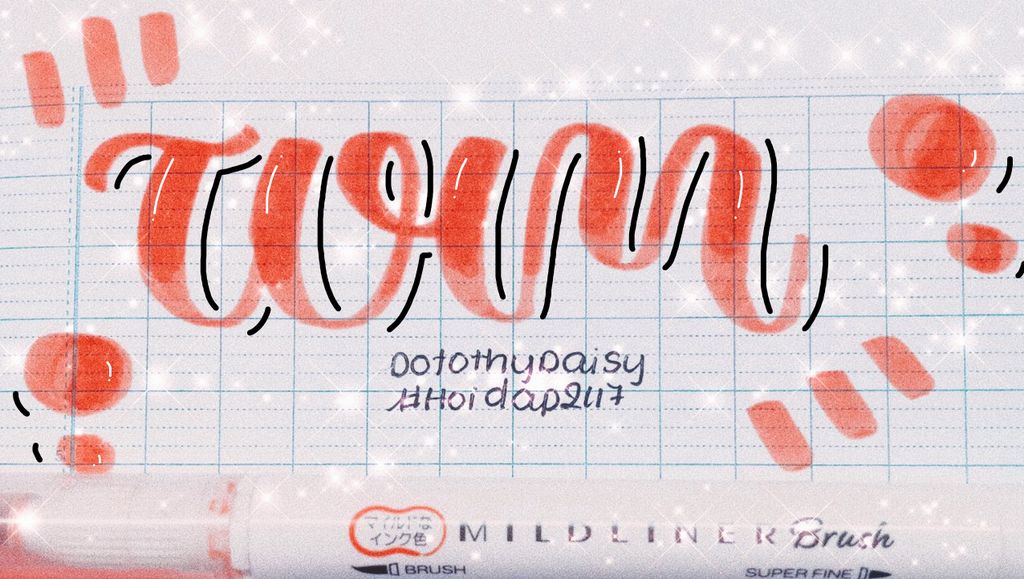 DotothyDaisy
#Hoidap247
マイルドな
インク色
MILDLINER Brush
BRUSH
SUPER FINE